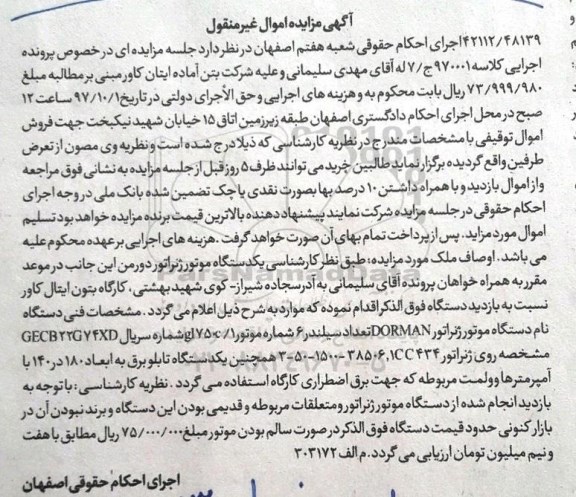 آگهی مزایده اموال غیرمنقول
۴۲۱۱۲/۴۸۱۳۹ اجرای احکام حقوقی شعبه هفتم اصفهان در نظر دارد جلسه مزایده ای در خصوص پرونده
اجرایی کلاسه ۹۷۰۰۰۱ج/۷ له آقای مهدی سلیمانی و علیه شرکت بتن آماده ایتان کاور مبنی بر مطالبه مبلغ
۷۳/۹۹۹/۹۸۰ ریال بابت محکوم به و هزینه های اجرایی و حق الأجرای دولتی در تاریخ ۹۷/۱۰/۱ ساعت ۱۲
صبح در محل اجرای احکام دادگستری اصفهان طبقه زیرزمین اتاق ۱۵ خیابان شهید نیکبخت جهت فروش
اموال توقیفی با مشخصات مندرج در نظریه کارشناسی که ذیلا درج شده است و نظریه وی مصون از تعرض
طرفین واقع گردیده برگزار نماید طالبین خرید می توانند ظرف ۵ روز قبل از جلسه مزایده به نشانی فوق مراجعه
و از اموال بازدید و با همراه داشتن ۱۰ درصد بها بصورت نقدی یا چک تضمین شده بانک ملی در وجه اجرای
احکام حقوقی در جلسه مزایده شرکت نمایند پیشنهاد دهنده بالاترین قیمت برنده مزایده خواهد بود تسلیم
اموال مورد مزاید. پس از پرداخت تمام بهای آن صورت خواهد گرفت. هزینه های اجرایی بر عهده محکوم علیه
می باشد. اوصاف ملک مورد مزایده: طبق نظر کارشناسی یکدستگاه موتور ژنراتور دور من این جانب در موعد
مقرر به همراه خواهان پرونده آقای سلیمانی به آدرس جاده شیراز- کوی شهید بهشتی، کارگاه بتون ایتال کاور
نسبت به بازدید دستگاه فوق الذکر اقدام نموده که موارد به شرح ذیل اعلام می گردد. مشخصات فنی دستگاه
نام دستگاه موتور ژنراتور DORMAN تعداد سیلندر ۶ شماره موتور ۱/ شماره سریال GECB۲۲G۷۴XD
مشخصه روی ژنراتور ۱CC۴۳۴,۳۸۵۰۶-۱۵۰۰-۵۰-۳ همچنین یکدستگاه تابلو برق به ابعاد ۱۸۰ در ۱۴۰ با
آمپرمترها وولمت مربوطه که جهت برق اضطراری کارگاه استفاده می گردد. نظریه کارشناسی: با توجه به
بازدید انجام شده از دستگاه موتور ژنراتور و متعلقات مربوطه و قدیمی بودن این دستگاه و برند نبودن آن در
بازار کنونی حدود قیمت دستگاه فوق الذکر در صورت سالم بودن موتور مبلغ ۷۵/۰۰۰/۰۰۰ ریال مطابق با هفت
و نیم میلیون تومان ارزیابی می گردد. م الف ۳۰۳۱۷۲
اجرای احکام حقوقی اصفهان